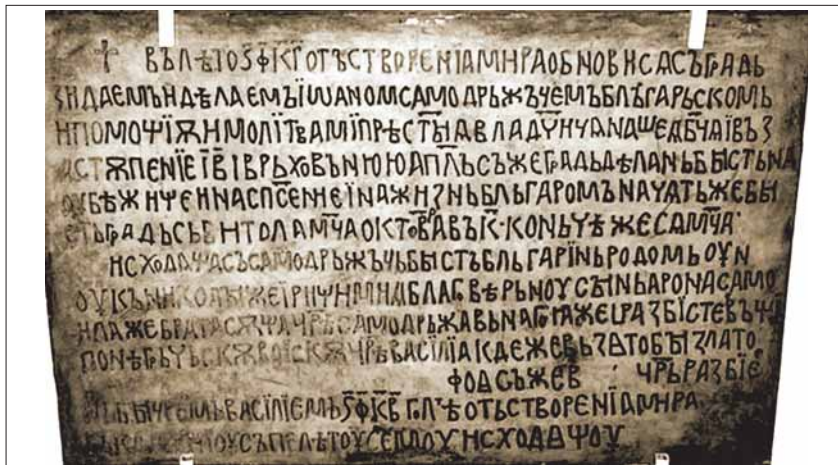 † ВЪЛѢТОЅ҃Ф҃К҃ГОТЪСТВОРЕНІАМИРАОБНОВИСАСЪГРАДЬ
ЗИДАЕМЪИДѢЛАЕМЪЇѠАНОМСАМОДРЬЖЪЧЕМЪБЛЬГАРЬСКОМЬ
ИПОМОЩІѪИМОЛІТВАМІПРѢСТ҃ЫАВЛАДЧ҃ИЧАНАШЕѦБЧ҃АІВЪЗ
АСТѪПЕНІЕІВ҃ІВРЬХОВЪНЮЮАПЛ҃ЪСЪЖЕГРАДЬДѢЛАНЬБЫСТЬНА
ОУБѢЖИЩЕИНАСПС҃ЕНИЕЇНАЖИЗНЬБЛЬГАРОМЪНАЧАТЬЖЕБЫ
СТЬГРАДЬСЬБИТОЛАМЧ҃АОКТОВРАВЪК҃·КОНЬЧѢЖЕСАМЧ҃А·
ИСХОДАЩАСЪСАМОДРЬЖЪЧЬБЫСТЪБЛЬГАРІНЬРОДОМЬОУН
ОУКЪНИКОЛЫЖЕЇРИѰИМИАБЛАГОВѢРЬНОУСЫНЬАРОНАСАМО
ИЛАЖЕБРАТАСѪЩАЧР҃ѢСАМОДРЬЖАВЬНАГОІАЖЕІРАЗБІСТЕВЪЩИ
ПОНѢГРЬЧЬСКѪВОІСКѪЧР҃ѢВАСІЛІАКДЕЖЕВЬЗАТОБЫЗЛАТО
ФОАСЪЖЕВ ЧР҃ЬРАЗБІЕ
ЧР҃ЕМЬВАСІЛІЕМЬЅ҃Ф҃К҃В ГО ЛѢОТЬСТВОРЕНІАМИРА
ОУСЪПЕЛѢТОУСЕМОУИСХОДАЩОУ